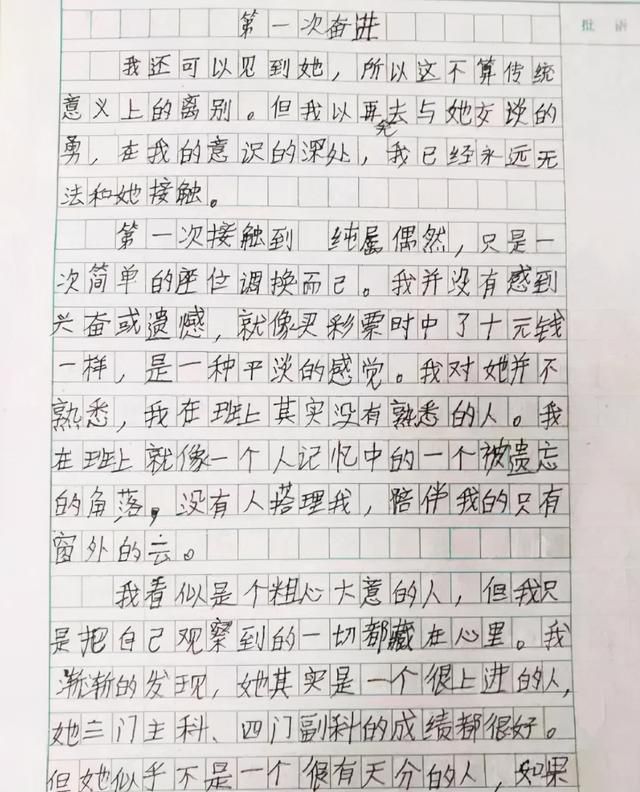 批语
第一次奋进
我还可以见到她，所以这不算传统
意义上的离别。但我以再去与她交谈的
死
勇，在我的意识的深处，我已经永远无
法和她接触。
第一次接触到 纯属偶然，只是一
次简单的座位调换而已。我并没有感到
兴奋或遗憾，就像买彩票时中了十元钱
一样，是一种平淡的感觉。我对她并不
熟悉，我在班上其实没有熟悉的人。我
在班上就像一个人记忆中的一个被遗忘
的角落，没有人搭理我，陪伴我的只有
窗外的云。
我看似是个粗心大意的人，但我只
是把自己观察到的一切都藏在心里。我
渐渐的发现，她其实是一个很上进的人，
她三门主科、四门副科的成绩都很好。
但她似乎不是一个很有天分的人，如果